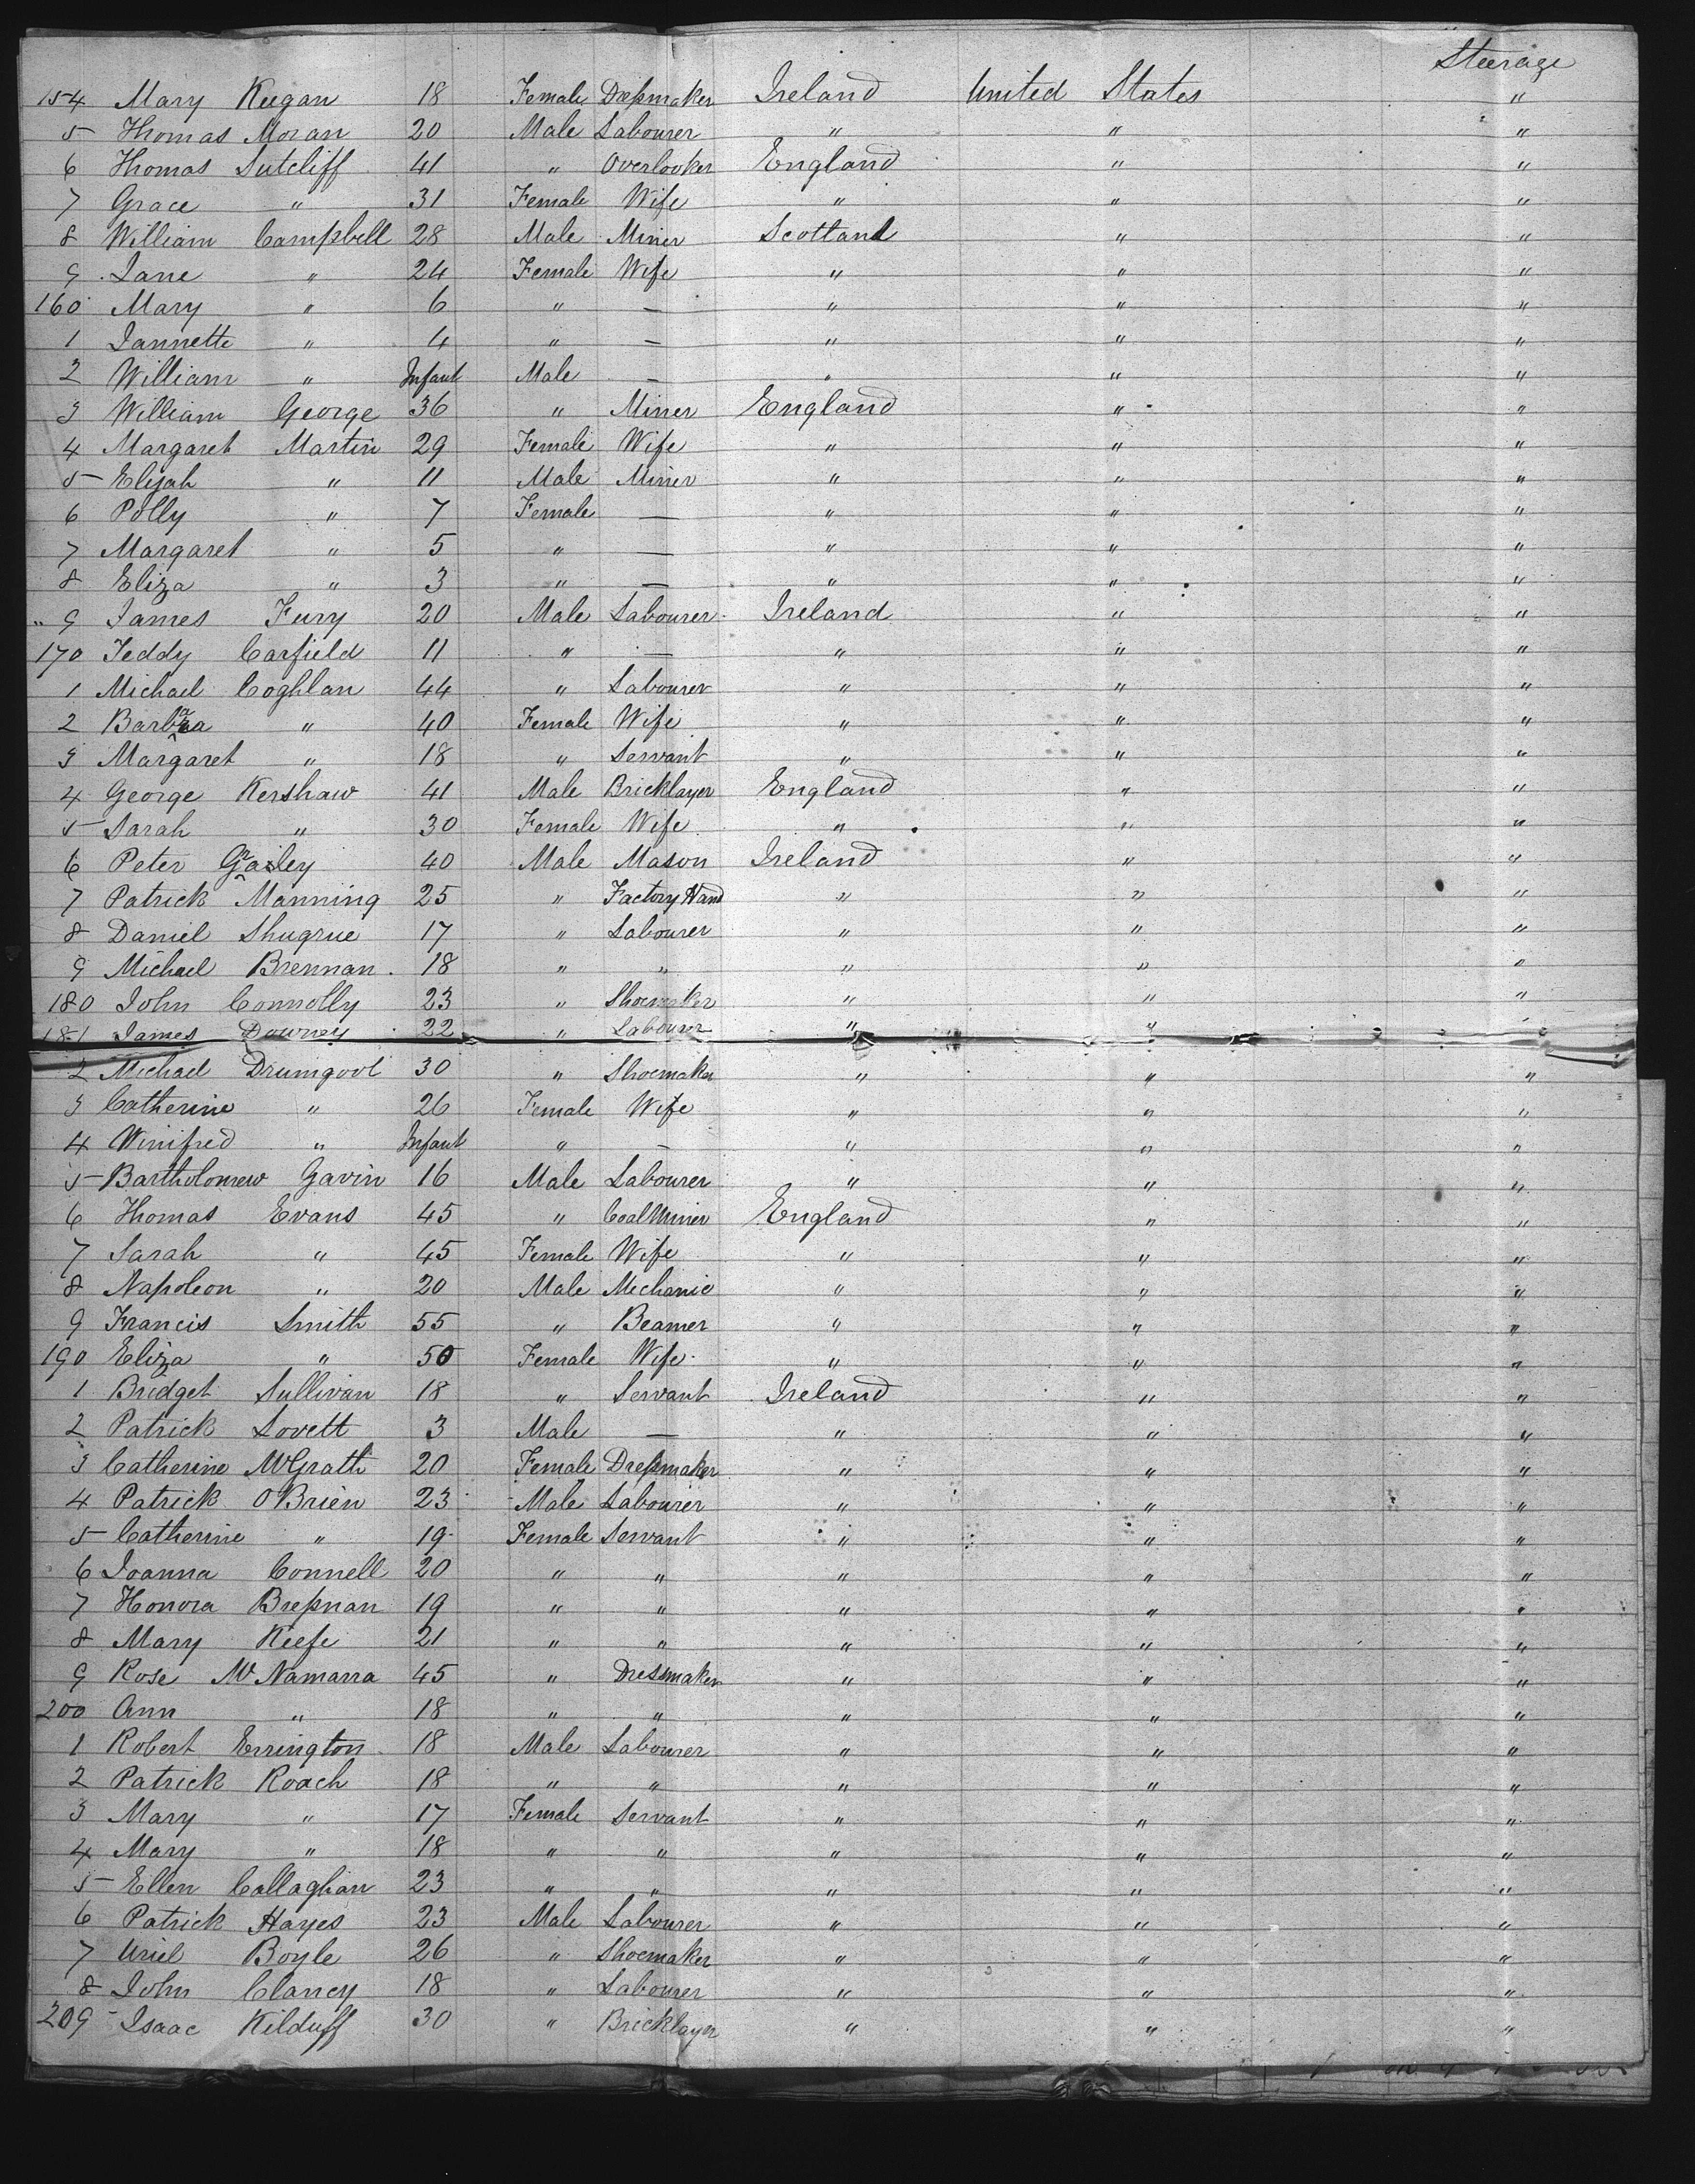 Steerage
154 Mary Keegan 18 Female Dressmaker Ireland United States "
5 Thomas Moran 20 Male Labourer " " "
6 Thomas Sutcliff 41 " Overlooker England " "
7 Grace " 31 Female Wife " " "
8 William Campbell 28 Male Miner Scotland " "
9 Jane " 24 Female Wife " " "
160 Mary " 6 " — " " "
1 Jannette " 4 " — " " "
2 William " Infant Male — " " "
3 William George 36 " Miner England " "
4 Margaret Martin 29 Female Wife " " "
5 Elijah " 11 Male Miner " " "
6 Polly " 7 Female — " " "
7 Margaret " 5 " — " " "
8 Eliza " 3 " — " " "
9 James Fury 20 Male Labourer Ireland " "
170 Teddy Carfield 11 " — " " "
1 Michael Coghlan 44 " Labourer " " "
2 Barbara " 40 Female Wife " " "
3 Margaret " 18 " Servant " " "
4 George Kershaw 41 Male Bricklayer England " "
5 Sarah " 30 Female Wife " " "
6 Peter 40 Male Mason Ireland " "
7 Patrick Manning 25 " Factory Hand " " "
8 Daniel Shugrue 17 " Labourer " " "
9 Michael Brennan 18 " " " " "
180 John Connolly 23 " Shoemaker " " "
181 James Downey 22 " Labourer " " "
2 Michael Drumgool 30 " Shoemaker " " "
3 Catherine " 26 Female Wife " " "
4 Winifred " Infant " — " " "
5 Bartholomew Gavin 16 Male Labourer " " "
6 Thomas Evans 45 " Coal Miner England " "
7 Sarah " 45 Female Wife " " "
8 Napoleon " 20 Male Mechanic " " "
9 Francis Smith 55 " Beamer " " "
190 Eliza " 50 Female Wife " " "
1 Bridget Sullivan 18 " Servant Ireland " "
2 Patrick Lovett 3 Male — " " "
3 Catherine McGrath 20 Female Dressmaker " " "
4 Patrick O'Brien 23 Male Labourer " " "
5 Catherine " 19 Female Servant " " "
6 Joanna Connell 20 " " " " "
7 Honora Bresnan 19 " " " " "
8 Mary Keefe 21 " " " " "
9 Rose McNamarra 45 " Dressmaker " " "
200 Ann " 18 " " " " "
1 Robert Errington 18 Male Labourer " " "
2 Patrick Roach 18 " " " " "
3 Mary " 17 Female Servant " " "
4 Mary " 18 " " " " "
5 Ellen Callaghan 23 " " " " "
6 Patrick Hayes 23 Male Labourer " " "
7 Uriel Boyle 26 " Shoemaker " " "
8 John Clancy 18 " Labourer " " "
209 Isaac Kilduff 30 " Bricklayer " " "